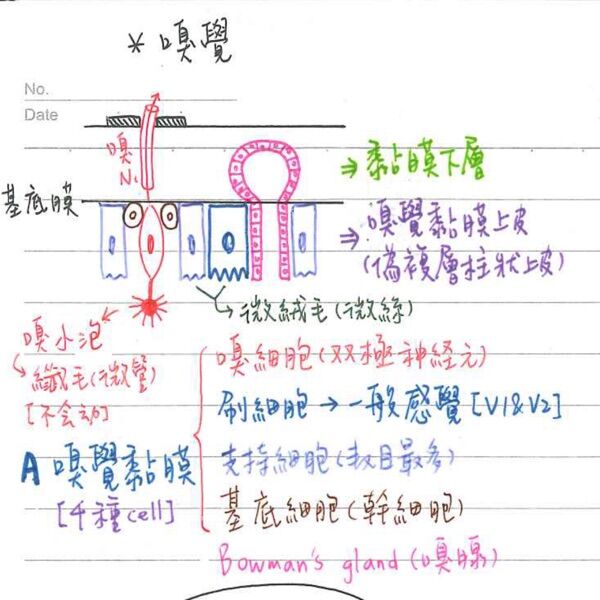 * 嗅覺
No.
Date
嗅
N.
⇒ 黏膜下層
基底膜
⇒ 嗅覺黏膜上皮
(偽複層柱狀上皮)
→ 微絨毛(微絲)
嗅小泡
↳ 纖毛(微管)
[不会动]
嗅細胞(双極神経元)
刷細胞 → 一般感覺 [V1&V2]
A 嗅覺黏膜
支持細胞(数目最多)
基底細胞(幹細胞)
Bowman's gland (嗅腺)